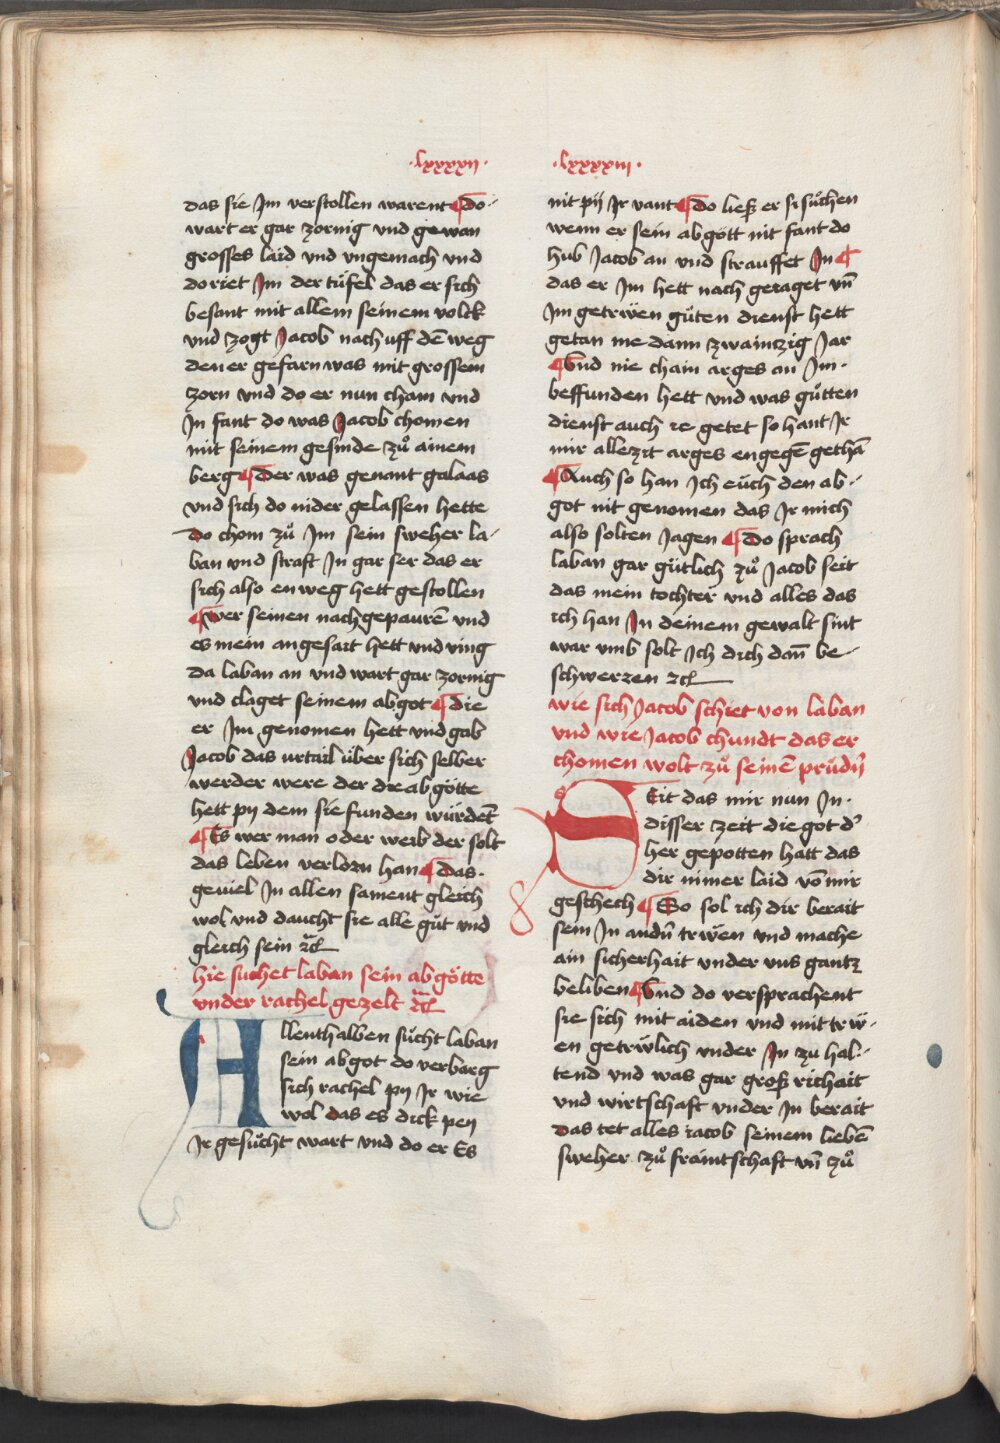 ·lxxxxii·
das sie Jm verstollen warent ¶ do
wart er gar zornig vnd gewan
grosses laid vnd vngemach vnd
do riet Jm der tüfel das er sich
besant mit allem seinem volck
vnd zogt Jacob nach uff dē weg
den er gefarn was mit grossem
zorn vnd do er nun cham vnd
Jn fant do was Jacob chomen
mit seinem gesinde zů ainem
berg ¶ der was genant galaas
vnd sich do nider gelassen hette
do chom zů Jm sein sweher la-
ban vnd straft Jn gar ser das er
sich also enweg hett gestollen
¶ wer seinen nachgepaurē vnd
es mein angefart hett vnd ving
da laban an vnd wart gar zornig
vnd claget seinem abgot ¶ die
er Jm genomen hett vnd gab
Jacob das urtail über sich selber
werder were der die abgötte
hett py dem sie funden würdēt
¶ Es wer man oder weib der solt
das leben verlorn han ¶ das
geuiel Jn allen sament gleich
wol vnd daucht sie alle gůt vnd
gleich sein rcl
hie suchet laban sein abgötte
vnder rachel gezelt rcl
Allenthalben sůcht laban
sein abgot do verbarg
sich rachel py Jr wie
wol das es dick pey
Jr gesůcht wart vnd do er Es
·lxxxxiii·
nit py Jr vant ¶ do ließ er sŭchen
wenn er sein abgött nit fant do
hub Jacob an vnd strauffet Jn ¶
das er Jm hett nach geraget vn̄
Jm getrẅen gůten dienst hett
getan me dann zwainczig Jar
¶ Vnd nie chain arges an Jm
beffunden hett vnd was gůtten
dienst auch ie getet so hant Jr
mir allezit arges engegē gethā
¶ Auch so han Jch eüch den ab-
got nit genomen das Jr mich
also solten Jagen ¶ do sprach
laban gar gütlich zů Jacob seit
das mein tochter vnd alles das
ich han Jn deinem gewalt sint
war vmb solt Jch dich dan̄ be-
schwerzen rcl
wie sich Jacob schiet von laban
vnd wie Jacob chundt das er
chomen wolt zů seinē prüdn̄
SEit das mir nun Jn
disser zeit die got d'
her gepotten hatt das
dir nimer laid vō mir
geschech ¶ So sol ich dir berait
sein Jn andn̄ trẅen vnd mache
ain sicherhait vnder vns gantz
beliben ¶ Vnd do versprachent
sie sich mit aiden vnd mit trẅ-
en getrẅlich vnder Jn zu hal-
tend vnd was gar groß richait
vnd wirtschaft vnder Jn berait
das tet alles iacob seinem liebē
sweher zů fraintschaft vn̄ zů